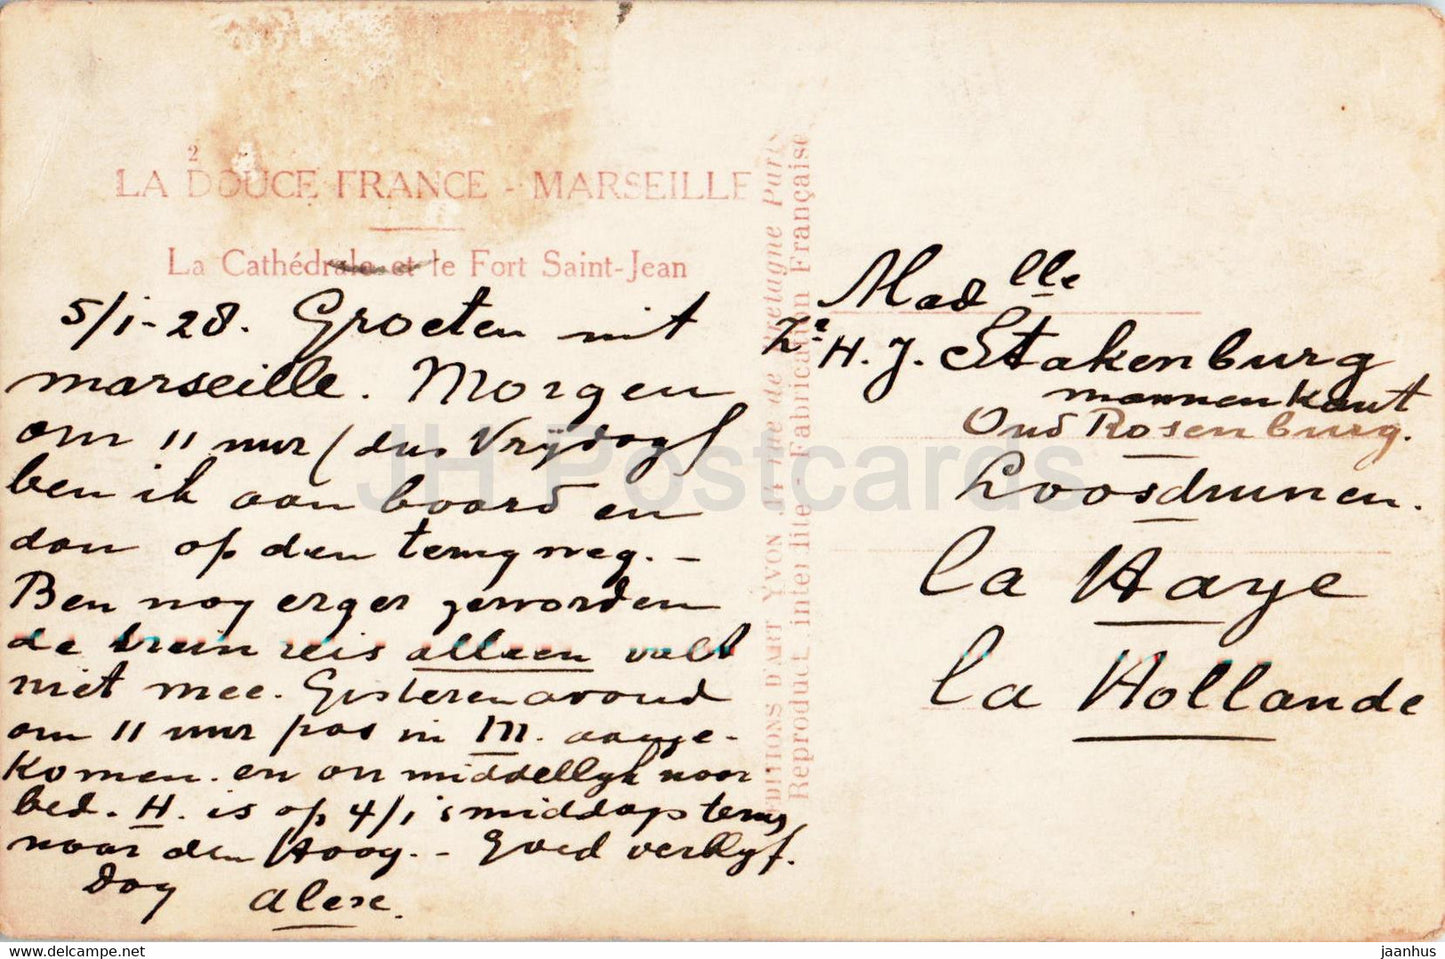 2
LA DOUCE FRANCE - MARSEILLE
La Cathédrale et le Fort Saint-Jean
5/1-28. Groeten uit
marseille. Morgen
om 11 uur (dus Vrijdag)
ben ik aan boord en
dan op den terug weg. -
Ben nog erger geworden
de trein reis alleen valt
niet mee. Gisterenavond
om 11 uur pas in M. aange-
Komen. en onmiddellijk naar
bed. H. is op 4/1 's middags terug
naar den Haag. - Goed verblijf.
Dag Alex.
EDITIONS D'ART YVON 
Reproduct. interdite - Fabrication Française
Mad lle
Zr H. J. Stakenburg
mannenkant
Oud Rosenburg.
Loosduinen.
La Haye
La Hollande
JH Postcards
hippostcard.com
jaanhus